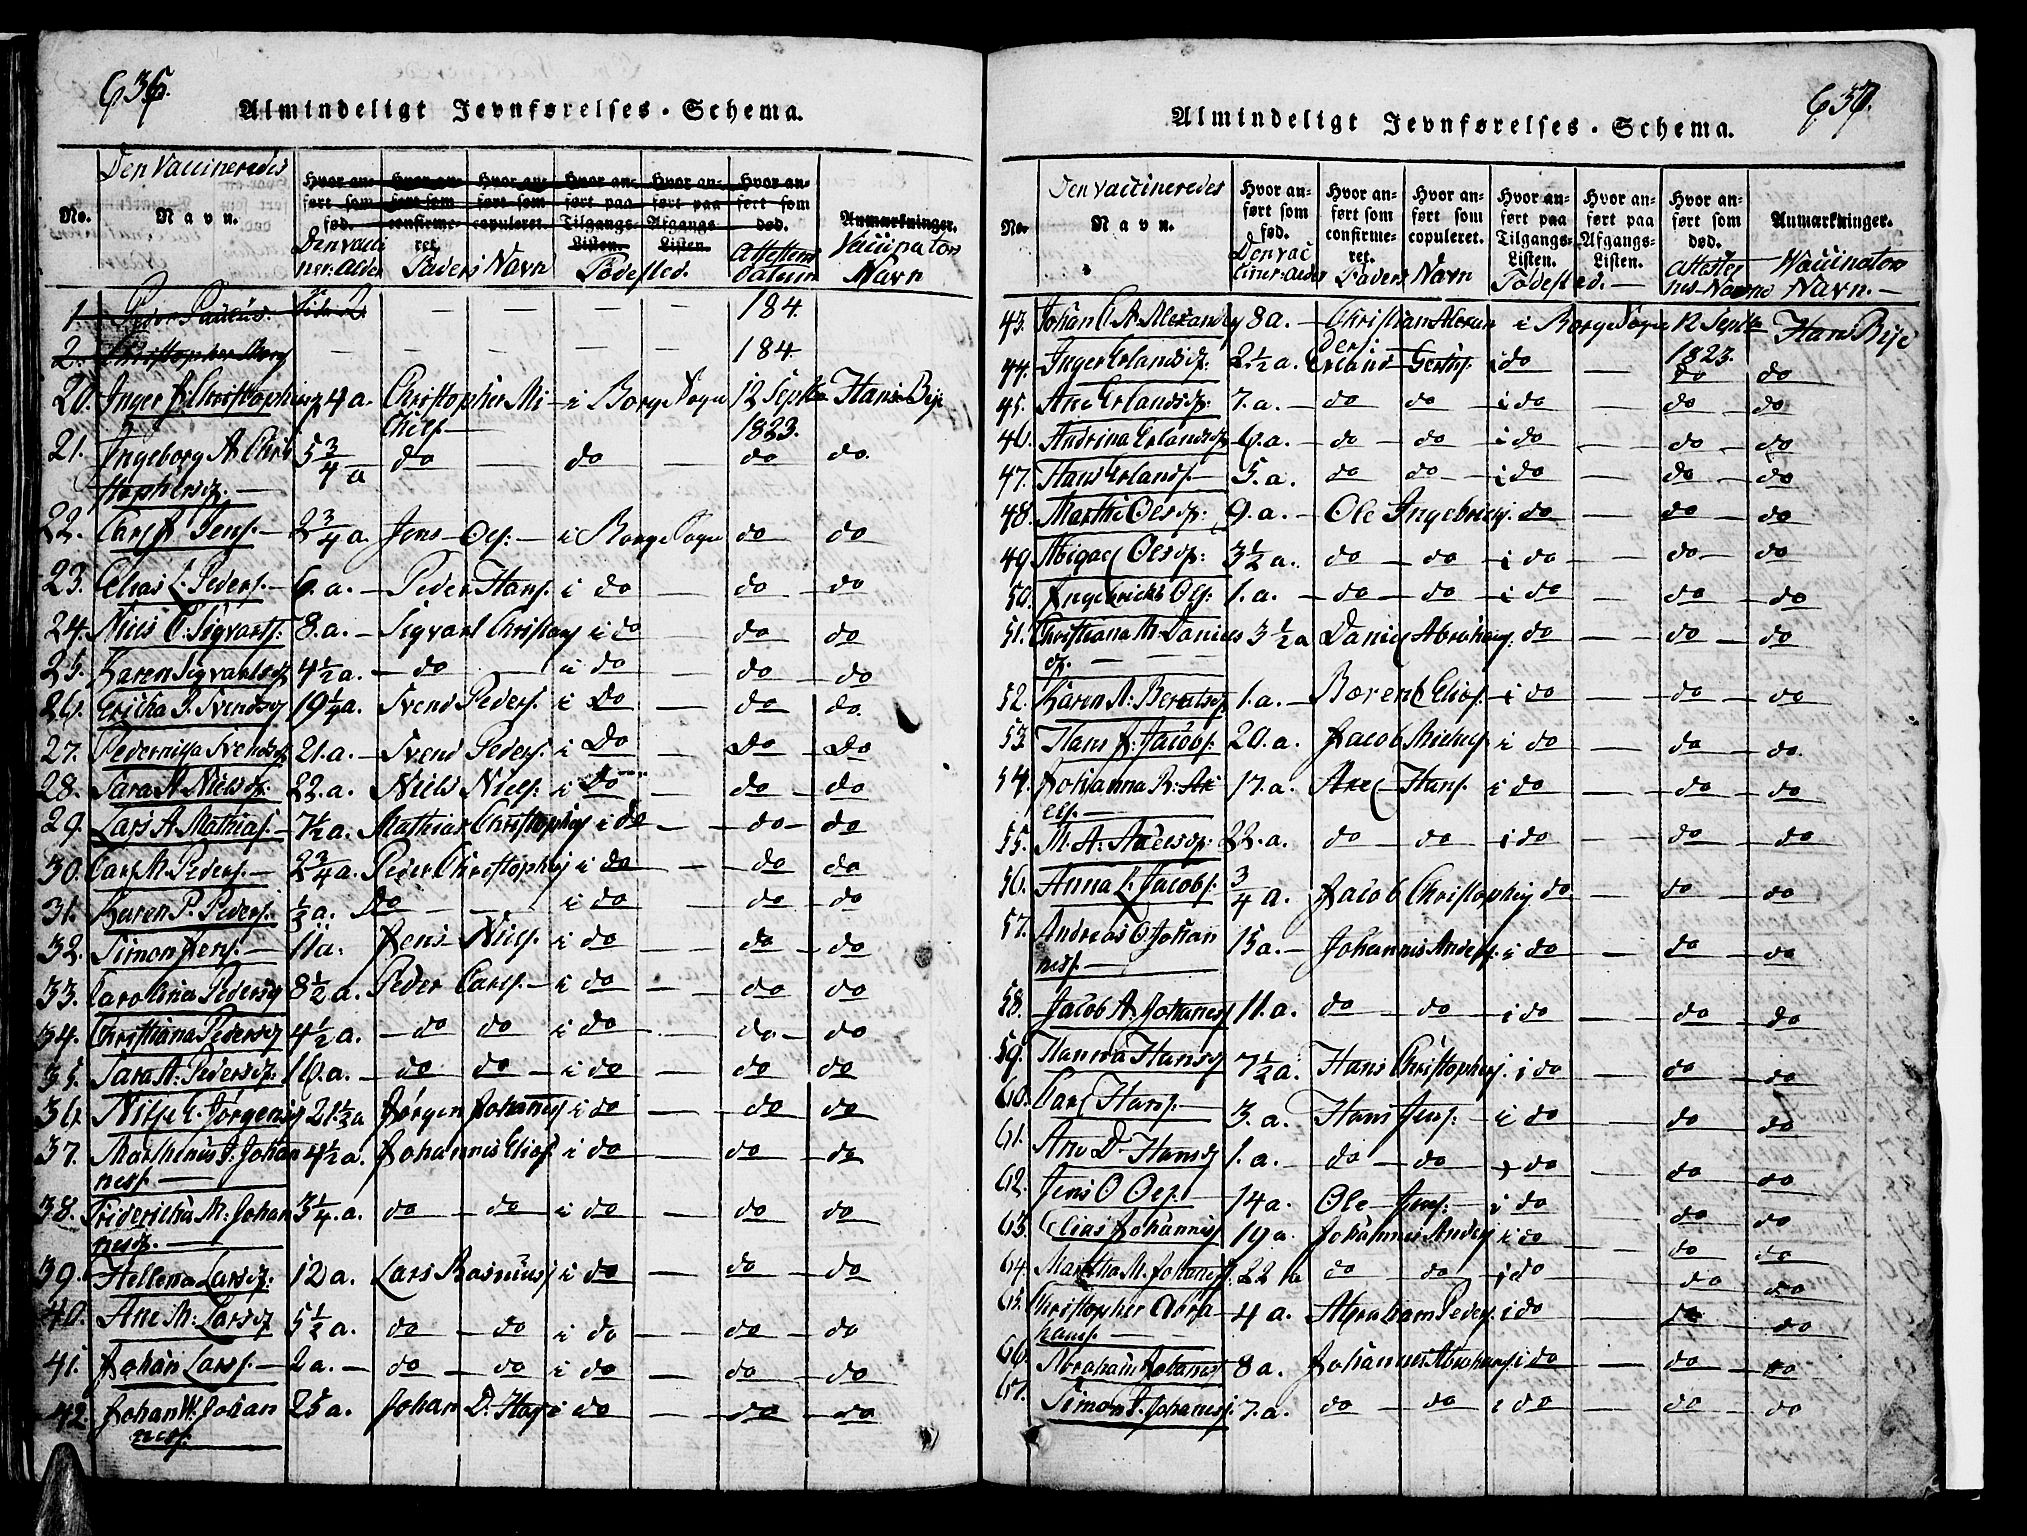 636.
Almindeligt Jevnførelses-Schema.
Den Vaccineredes
No. Navn. Hvor anført som fød. Hvor anført som confirmeret. Hvor anført som copuleret. Hvor anført paa Tilgangs-Listen. Hvor anført paa Afgangs-Listen. Hvor anført som død. Anmærkninger.
Den vacciner: Alder Faders Navn Fødested. Attestens datum Vaccinators Navn
1. Peder — — — — 184.
2. Christopher — — — — — 184.
20. Inger J. Christophersd 4 a. Christopher Mi- i Borge Sogn 12 Septbr Hans Bije
chels. — 1823.
21. Ingeborg A. Chris 5 3/4 a do — do — do do.
tophersd. —
22. Carl Jens. — 2 3/4 a. Jens Ols: — i Borge Sogn do do
23. Elias L. Peders. — 6. a. — Peder Hans. i do — do — do
24. Niels C. Sigvarts: 8. a. — Sigvart Christians i do do do
25. Karen Sigvartsd 4 1/2 a. — do — i do do do
26. Ericha P. Svendsd 19 1/4 a. Svend Peders. i Do — do do.
27. Pedernilla Svendsd 21. a. — Svend Peders. i Do — Do — Do
28. Sara A. Nielsd. 22. a. Niels Niels. i Do — do do
29. Lars A. Mathias. — 7 1/2 a. Mathias Christophers i do — do — do
30. Carl M. Peders. — 2 3/4 a. Peder Christophers i do — do do
31. Karen P. Peders. 1/2 a. Do — — i do — do — do
32. Simon Jens. — 11 a. Jens Niels. i do — do — do
33. Carolina Pedersd 8 1/2 a. Peder Carls. — i do — do do
34. Christiana Pedersd 4 1/2 a. — do do i do — do — do
35. Sara A. Pedersd. 16. a. — do do — i do — do do
36. Nilse E. Jørgens 21 1/2 a Jørgen Johannes i do — do — do
37. Marthinus J. Johan 4 1/2 a. Johannes Elias. i do — do — do
nes. —
38. Fridericha M. Johan 3 1/4 a. do — do — i do — do do
nesd. —
39. Hellena Larsd. 12 a. Lars Rasmus i do — do — do
40. Ane M. Larsd 5 1/2 a. do — do i do — do — do
41. Johan Lars. — 2 a. — do — do i do — do — do
42. Johan W. Johan 25 a. Johan D. i do — do — do
nes.
637.
Almindeligt Jevnførelses-Schema.
Den vaccineredes
No. Navn. Hvor anført som fød. Hvor anført som confirmeret. Hvor anført som copuleret. Hvor anført paa Tilgangs-Listen. Hvor anført paa Afgangs-Listen. Hvor anført som død. Anmærkninger.
Den vacciner: Alder Faders Navn Fødested. — Attestes Vaccinators Navn. —
43. Johan C. A. Alexanders 8 a. — Christian Alexan i Borge Sogn 12 Septbr Hans Bije
ders. 1823.
44. Inger Erlandsd. 2 1/2 a. Erland i do do do
45. Ane Erlandsd. 7. a. — do do — i do — do — do
46. Andrina Erlandsd 6. a. — do — do i do — do — do
47. Hans Erlands. — 5. a. do do — i do — do — do
48. Marthe Olsd. 9. a. — Ole Ingebrigts. do — do — do
49. Abigael Olsd: 3 1/2 a. do — do — i do — do — do
50. Ingebricht Ols: 1. a. — do — do — i do — do — do
51. Christiana M. Daniels 3 1/2 a Daniel Abrahams. do — do — do
d. — — —
52. Karen A. Berntsd. 1. a. — Bærent Elias. — i do — do — do
53. Hans J. Jacobs. 20. a. Jacob Michels i do — do — do.
54. Johanna R. Ax 17. a. Axel Hans. i do — do — do
els. —
55. M. A. Axelsd. 22. a. do — do — i do — do — do
56. Anna L. Jacobs. 3/4 a. Jacob Christophers do — do — do
57. Andreas O. Johan 15 a. — Johannes Anders. i do — do — do
nes. —
58. Jacob A. Johannes 11. a. do — do — i do — do — do
59. Hanna Hansd 7 1/2 a. Hans Christophers. i do — do — do
60. Carl Hans. — 3. a. Hans Jens. — i do — do — do
61. Ane D. Hansd 1. a. — do — do — i do — do — do
62. Jens O Ols. — 14 a. Ole Jens. — i do — do — do
63. Elias Johannes 19 a. Johannes Anders i do — do — do
64. Martha M. Johannes. 22 a do — do — i do — do — do
65. Christopher Abra 4 a. Abraham Peders. i do — do — do
hams. —
66. Abraham Johannes 8 a. Johannes Abrahams. i do — do — do
67. Simon P. Johannes. 7. a. do — do — i do — do — do